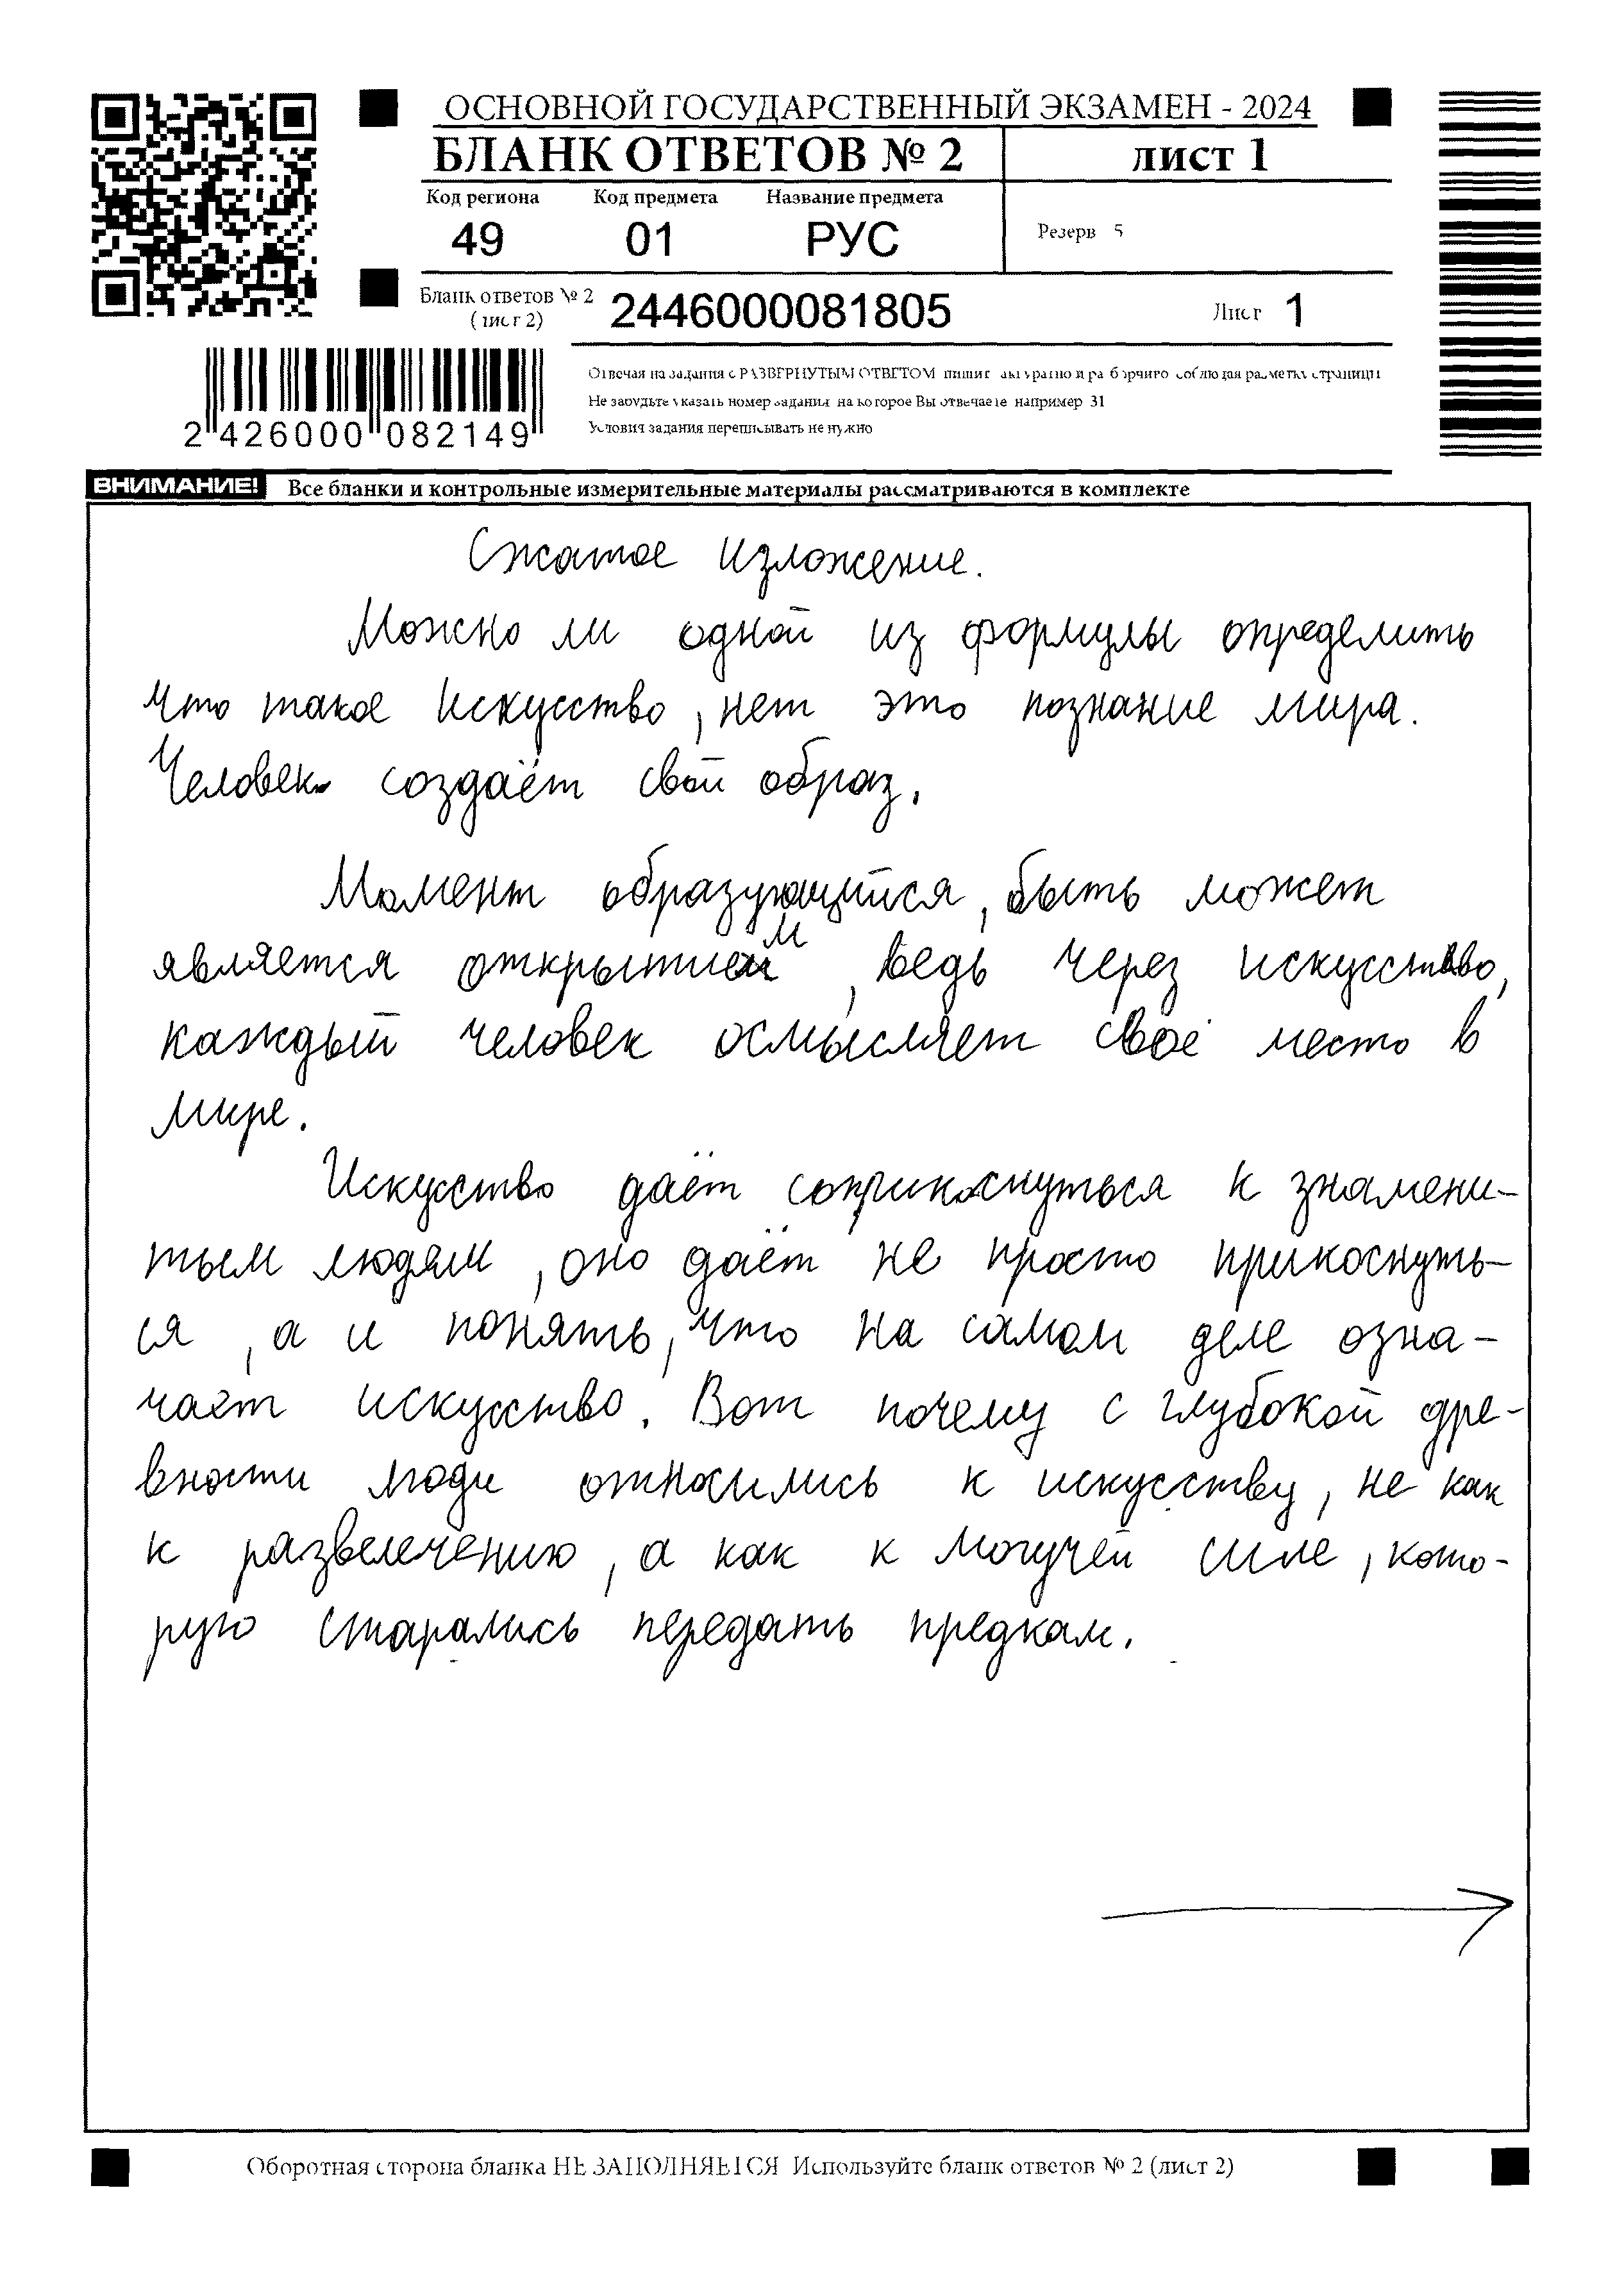 ОСНОВНОЙ ГОСУДАРСТВЕННЫЙ ЭКЗАМЕН - 2024
БЛАНК ОТВЕТОВ № 2 лист 1
Код региона Код предмета Название предмета
49 01 РУС Резерв 5
Бланк ответов № 2 (лист 2) 2446000081805 Лист 1
Отвечая на задания с РАЗВЕРНУТЫМ ОТВЕТОМ пишите аккуратно и разборчиво соблюдая разметку страницы
Не забудьте указать номер задания на которое Вы отвечаете например 31
Условия задания переписывать не нужно
2 426000 082149
ВНИМАНИЕ! Все бланки и контрольные измерительные материалы рассматриваются в комплекте
Сжатое изложение.
Можно ли одной из формулы определить
что такое искусство, нет это познание мира.
Человек создаёт свой образ.
Момент образующийся, быть может
является открытием, ведь через искусство,
каждый человек осмысляет своё место в
мире.
Искусство даёт соприкоснуться к знамени-
тым людям, оно даёт не просто прикоснуть-
ся, а и понять, что на самом деле озна-
чает искусство. Вот почему с глубокой дре-
вности люди относились к искусству, не как
к развелечению, а как к могучей силе, кото-
рую старались передать предкам.
Оборотная сторона бланка НЕ ЗАПОЛНЯЕТСЯ Используйте бланк ответов № 2 (лист 2)